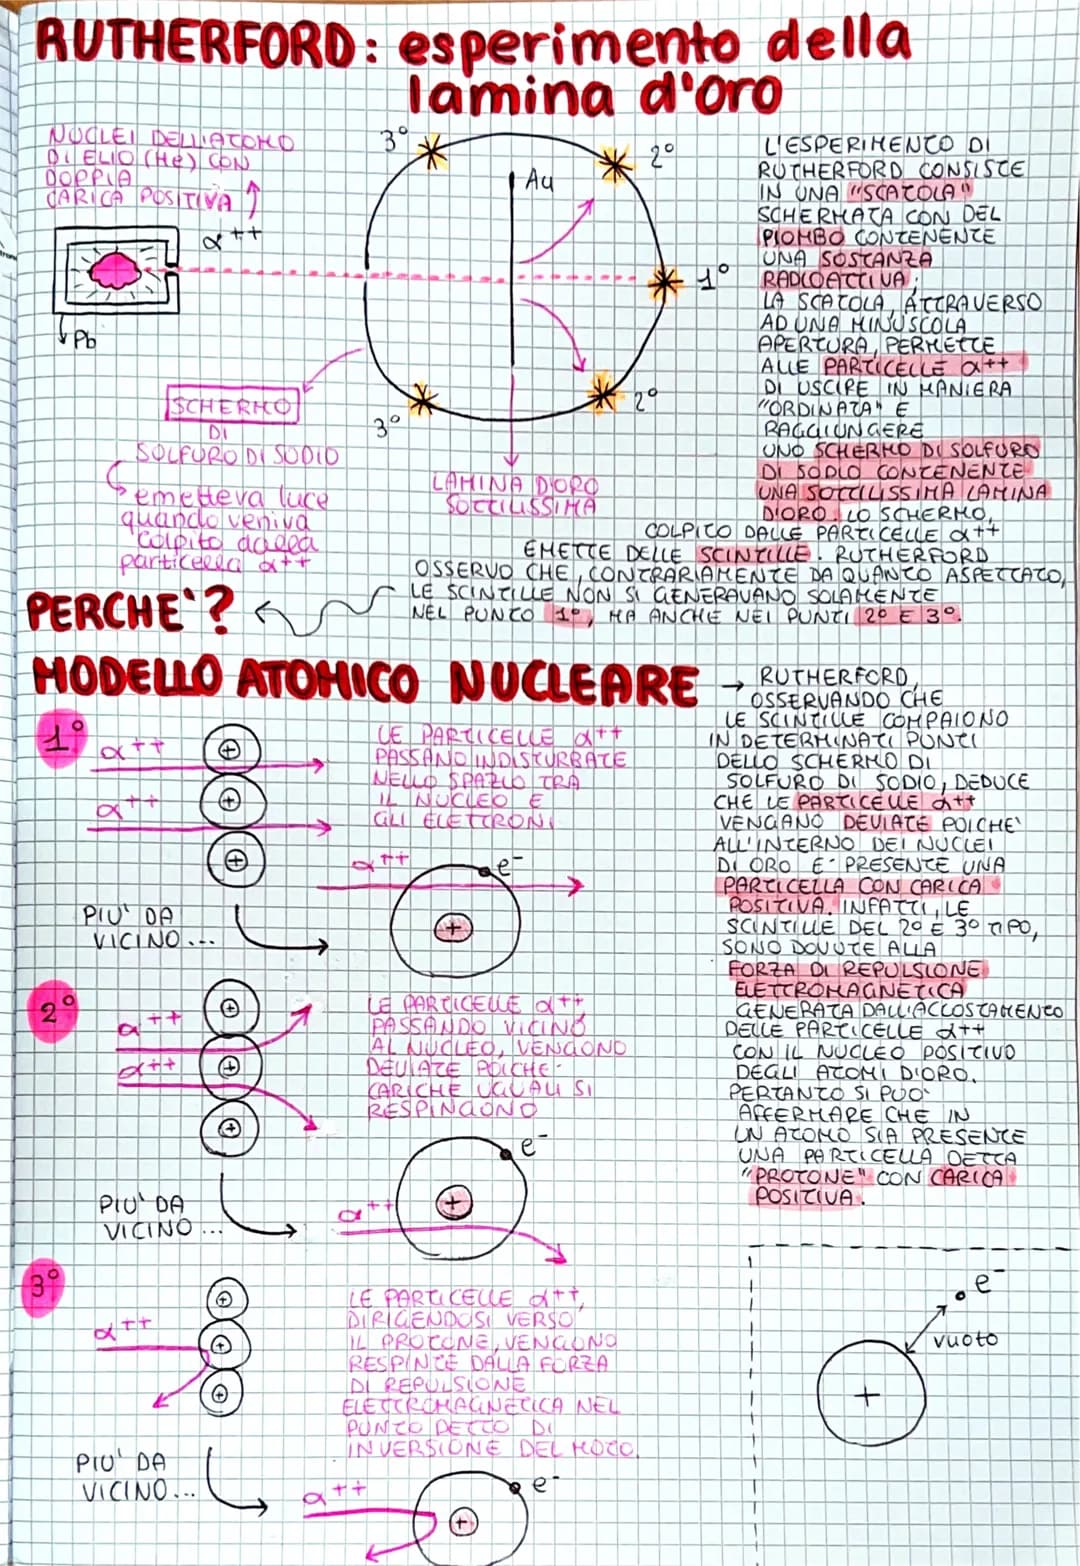 RUTHERFORD: esperimento della
lamina d'oro
NUCLEI DELL'ATOMO
DI ELIO (He) CON
DOPPIA
CARICA POSITIVA
α++
Pb
3°
2°
Au
1°
2°
3°
SCHERMO
DI
SOLFURO DI SODIO
emetteva luce
quando veniva
colpito dalla
particella α++
LAMINA D'ORO
SOTTILISSIMA
L'ESPERIMENTO DI
RUTHERFORD CONSISTE
IN UNA "SCATOLA"
SCHERMATA CON DEL
PIOMBO CONTENENTE
UNA SOSTANZA
RADIOATTIVA;
LA SCATOLA, ATTRAVERSO
AD UNA MINUSCOLA
APERTURA, PERMETTE
ALLE PARTICELLE α++
DI USCIRE IN MANIERA
"ORDINATA" E
RAGGIUNGERE
UNO SCHERMO DI SOLFURO
DI SODIO CONTENENTE
UNA SOTTILISSIMA LAMINA
D'ORO. LO SCHERMO,
COLPITO DALLE PARTICELLE α++
EMETTE DELLE SCINTILLE. RUTHERFORD
OSSERVO CHE, CONTRARIAMENTE DA QUANTO ASPETTATO,
LE SCINTILLE NON SI GENERAVANO SOLAMENTE
NEL PUNTO 1°, MA ANCHE NEI PUNTI 2° E 3°.
PERCHE'?
MODELLO ATOMICO NUCLEARE
RUTHERFORD,
OSSERVANDO CHE
LE SCINTILLE COMPAIONO
IN DETERMINATI PUNTI
DELLO SCHERMO DI
SOLFURO DI SODIO, DEDUCE
CHE LE PARTICELLE α++
VENGANO DEVIATE POICHE'
ALL'INTERNO DEI NUCLEI
DI ORO E' PRESENTE UNA
PARTICELLA CON CARICA
POSITIVA. INFATTI, LE
SCINTILLE DEL 2° E 3° TIPO,
SONO DOVUTE ALLA
FORZA DI REPULSIONE
ELETTROMAGNETICA
GENERATA DALL'ACCOSTAMENTO
DELLE PARTICELLE α++
CON IL NUCLEO POSITIVO
DEGLI ATOMI D'ORO.
PERTANTO SI PUO'
AFFERMARE CHE IN
UN ATOMO SIA PRESENTE
UNA PARTICELLA DETTA
"PROTONE" CON CARICA
POSITIVA.
1°
α++
α++
+
+
+
LE PARTICELLE α++
PASSANO INDISTURBATE
NELLO SPAZIO TRA
IL NUCLEO E
GLI ELETTRONI
PIU' DA
VICINO...
α++
e-
+
2°
α++
α++
+
+
+
LE PARTICELLE α++,
PASSANDO VICINO
AL NUCLEO, VENGONO
DEVIATE POICHE'
CARICHE UGUALI SI
RESPINGONO
PIU' DA
VICINO...
α++
e-
+
3°
α++
+
+
+
LE PARTICELLE α++,
DIRIGENDOSI VERSO
IL PROTONE, VENGONO
RESPINTE DALLA FORZA
DI REPULSIONE
ELETTROMAGNETICA NEL
PUNTO DETTO DI
INVERSIONE DEL MOTO.
PIU' DA
VICINO...
α++
e-
+
e-
vuoto
+